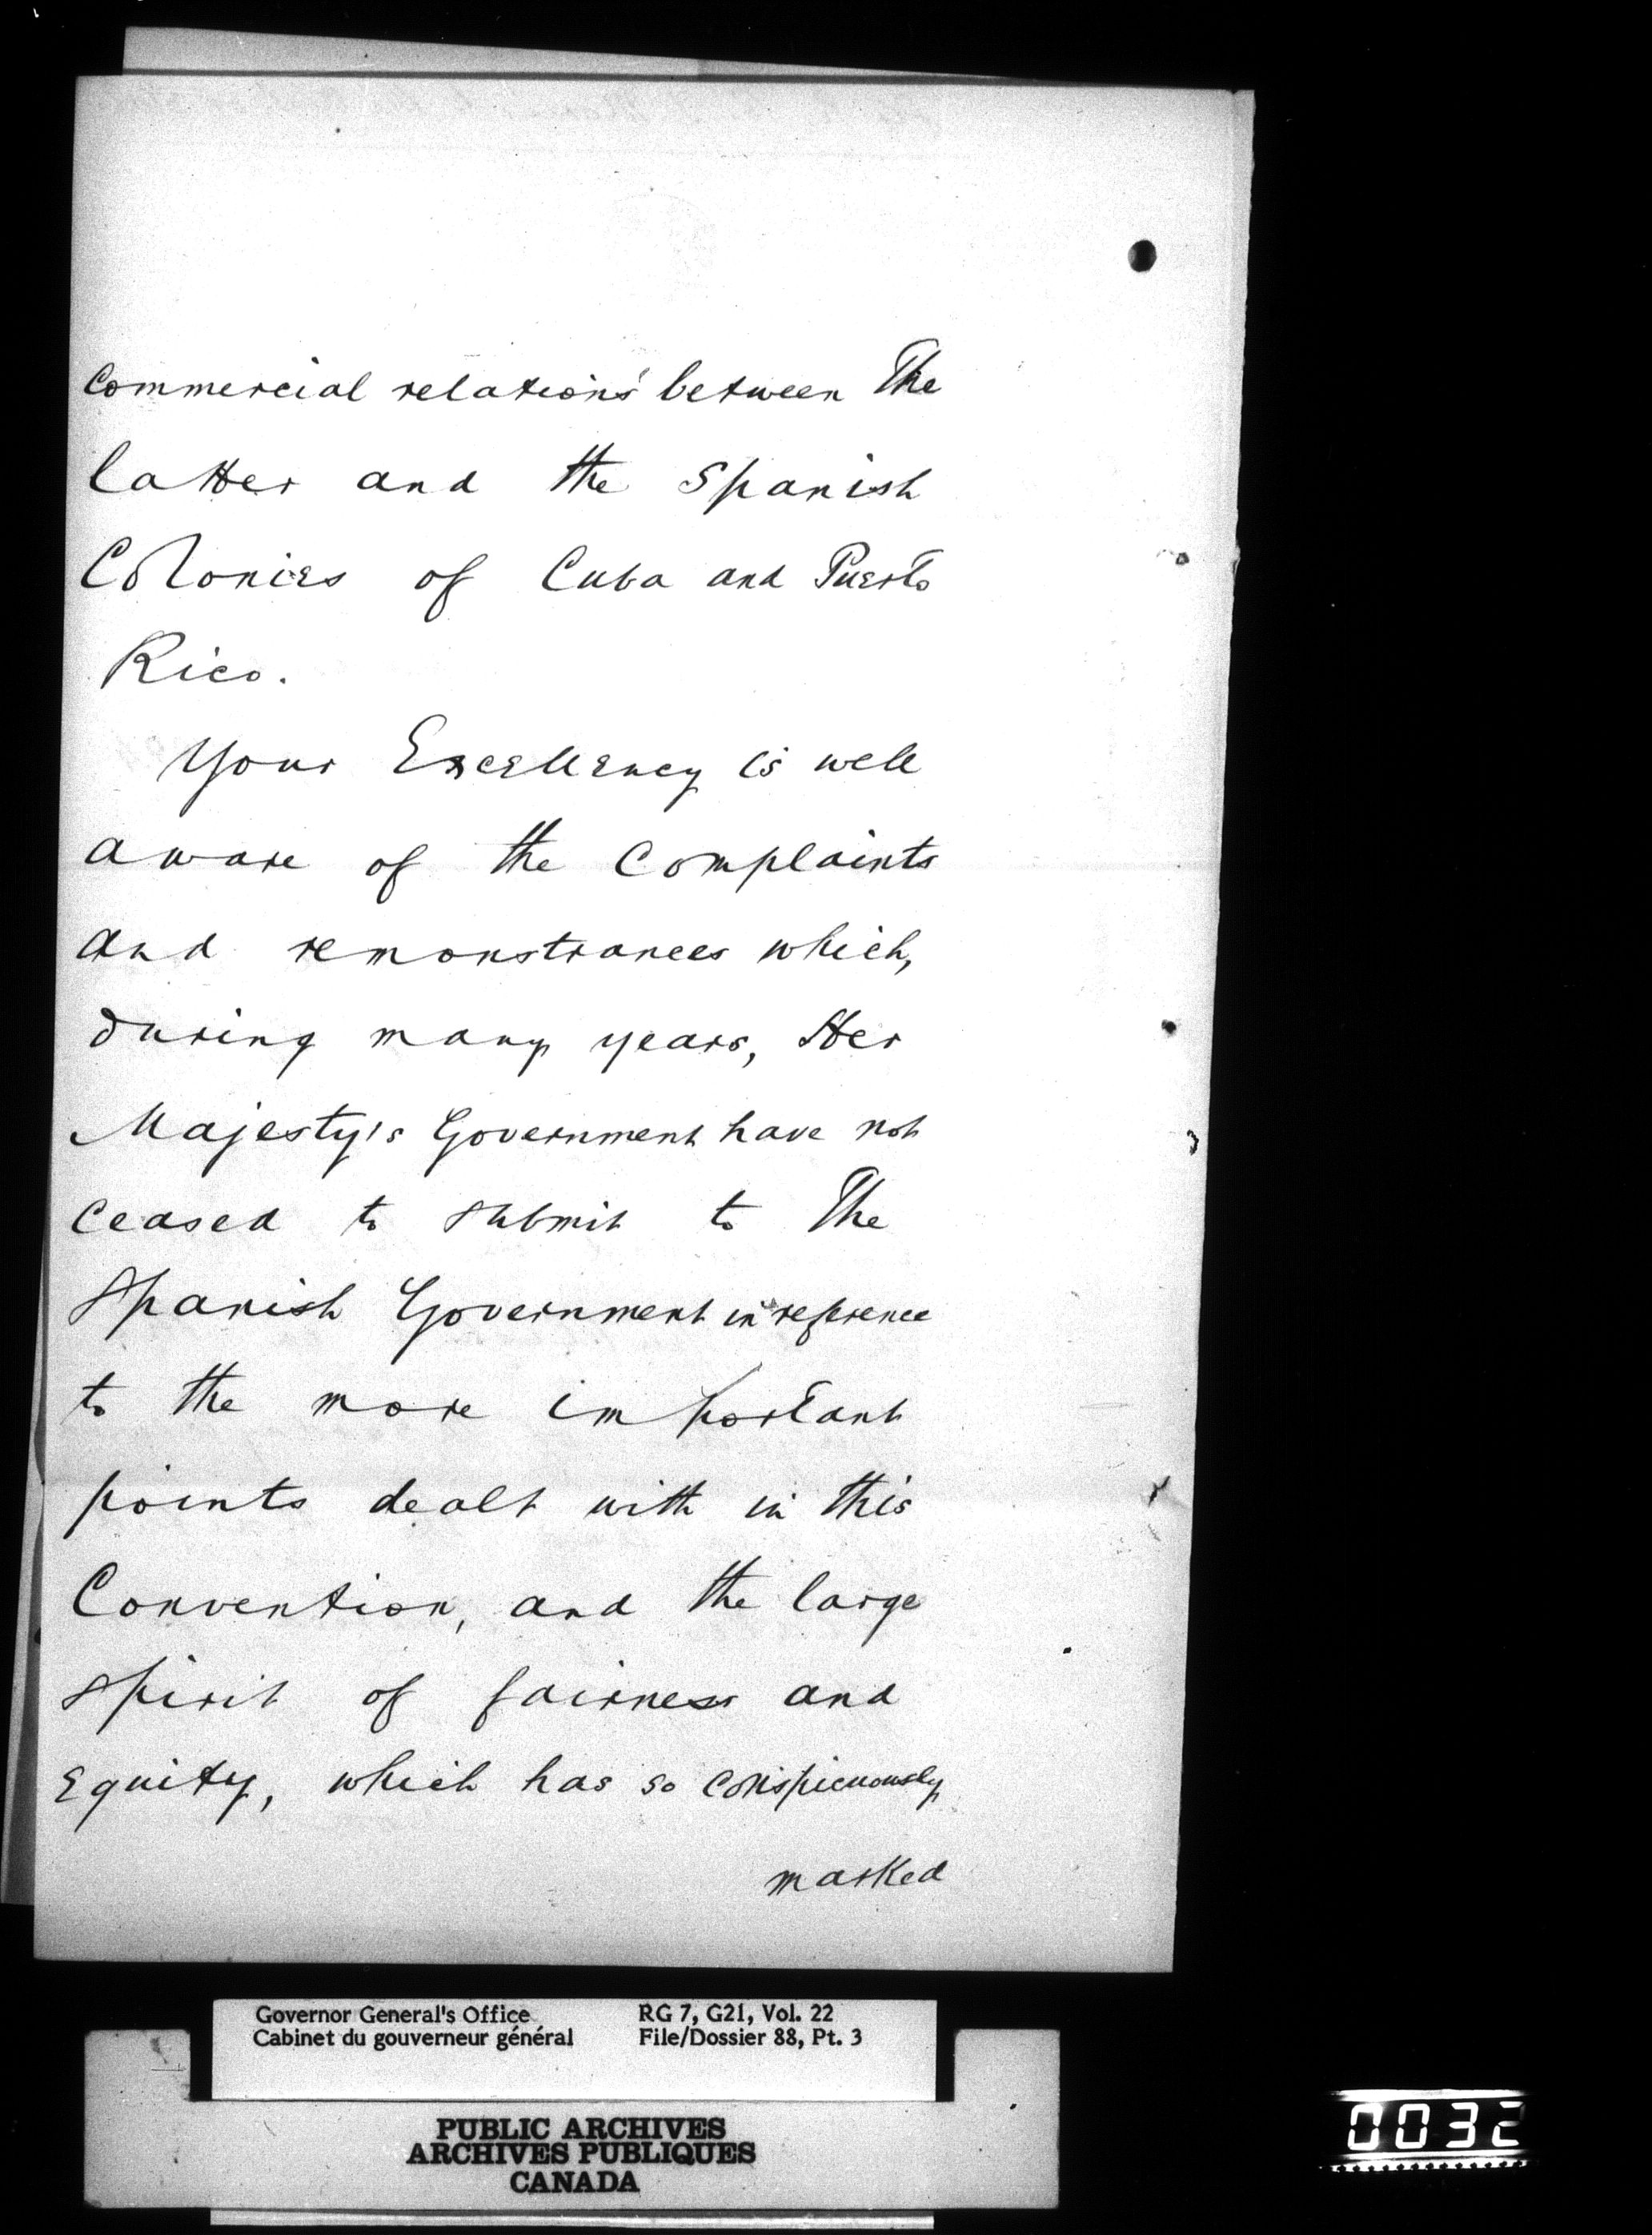 Commercial relations between The
latter and the Spanish
Colonies of Cuba and Puerto
Rico.
Your Excellency is well
aware of the Complaints
and remonstrances which,
during many years, Her
Majesty's Government have not
ceased to submit to The
Spanish Government in reference
to the more important
points dealt with in this
Convention, and the large
spirit of fairness and
Equity, which has so conspicuously
marked
Governor General's Office
Cabinet du gouverneur général
RG 7, G21, Vol. 22
File/Dossier 88, Pt. 3
PUBLIC ARCHIVES
ARCHIVES PUBLIQUES
CANADA
0032